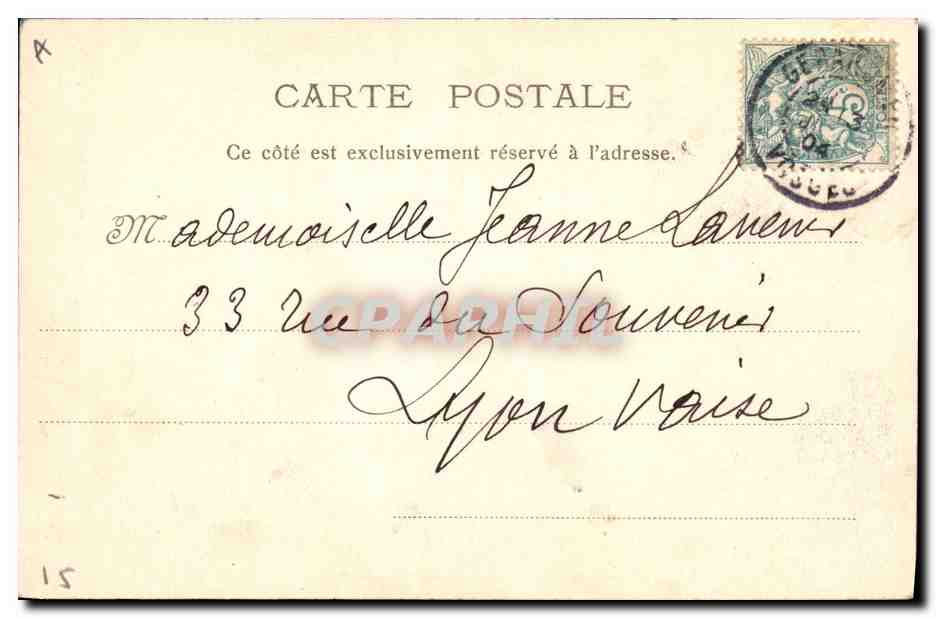 CARTE POSTALE
Ce côté est exclusivement réservé à l'adresse.
Mademoiselle Jeanne
33 rue du Souvenir
CPAPHIL
Lyon Vaise
VOSGES
04
15